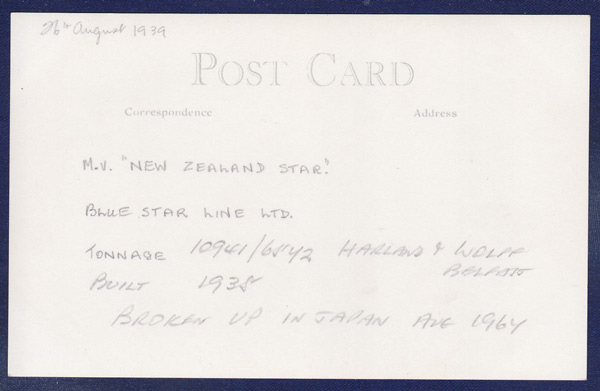 26th August 1939
POST CARD
Correspondence Address
M.V. "NEW ZEALAND STAR".
BLUE STAR LINE LTD.
TONNAGE 10941/6542 HARLAND & WOLFF
BELFAST
BUILT 1935
BROKEN UP IN JAPAN AUG 1967